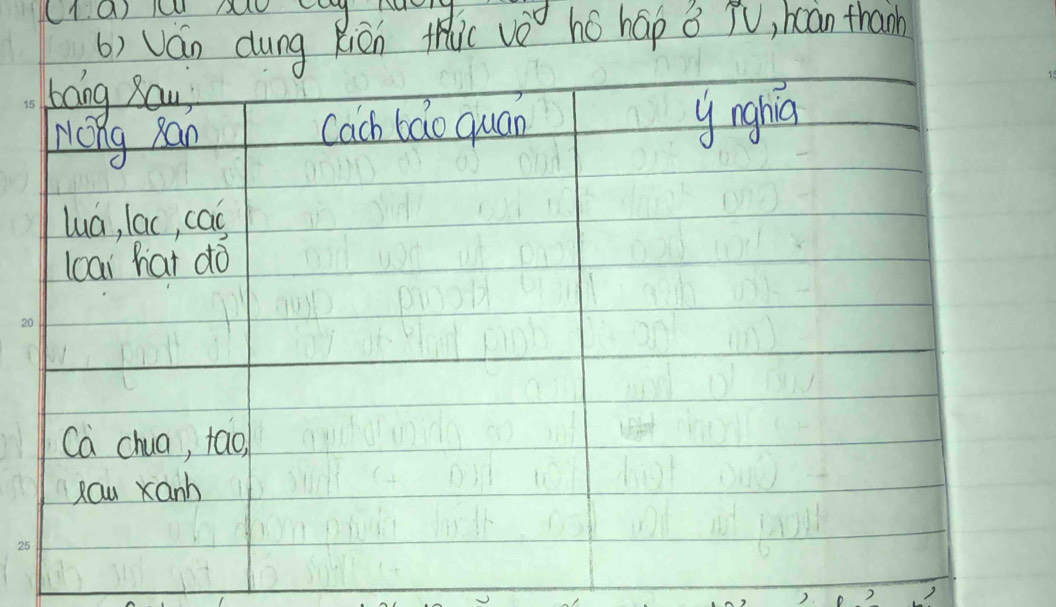 b) Vận dụng kiến thức về hô hấp ở TV, hoàn thành
bảng sau,
Nông sản | Cách bảo quản | ý nghĩa
lúa, lạc, các
loại hạt đỗ
Cà chua, táo,
rau xanh
15
20
25